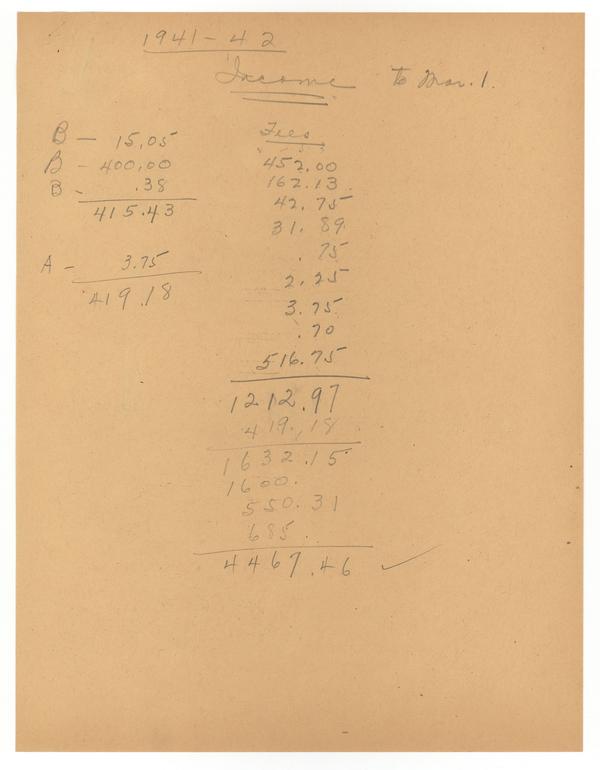 1941-42
Income to Mar. 1.
B - 15.05
B - 400.00
B - .38
415.43
A - 3.75
419.18
Fees
452.00
162.13
42.75
31.89
.75
2.25
3.75
.70
516.75
1212.97
419.18
1632.15
1600.
550.31
685.
4467.46 ✓